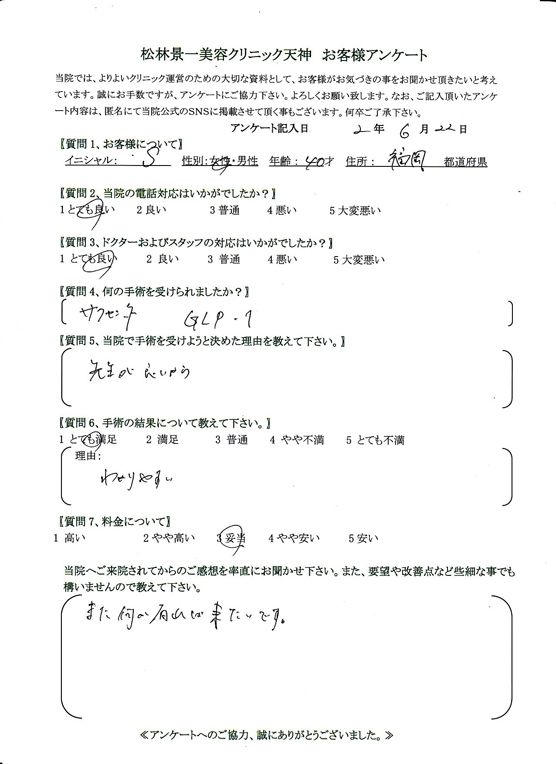 松林景一美容クリニック天神　お客様アンケート
当院では、よりよいクリニック運営のための大切な資料として、お客様がお気づきの事をお聞かせ頂きたいと考え
ています。誠にお手数ですが、アンケートにご協力下さい。よろしくお願い致します。なお、ご記入頂いたアンケ
ート内容は、匿名にて当院公式のSNSに掲載させて頂く事もございます。何卒ご了承下さい。
アンケート記入日　2 年 6 月 22 日
〖質問 1、お客様について〗
イニシャル： S　性別：女性・男性　年齢：40才　住所：福岡　都道府県
〖質問 2、当院の電話対応はいかがでしたか？〗
1 とても良い　2 良い　3 普通　4 悪い　5 大変悪い
〖質問 3、ドクターおよびスタッフの対応はいかがでしたか？〗
1 とても良い　2 良い　3 普通　4 悪い　5 大変悪い
〖質問 4、何の手術を受けられましたか？〗
サクセンダ　GLP-1
〖質問 5、当院で手術を受けようと決めた理由を教えて下さい。〗
先生が良いから
〖質問 6、手術の結果について教えて下さい。〗
1 とても満足　2 満足　3 普通　4 やや不満　5 とても不満
理由：
わかりやすい
〖質問 7、料金について〗
1 高い　2 やや高い　3 妥当　4 やや安い　5 安い
当院へご来院されてからのご感想を率直にお聞かせ下さい。また、要望や改善点など些細な事でも
構いませんので教えて下さい。
また何か有れば来たいです。
≪アンケートへのご協力、誠にありがとうございました。≫